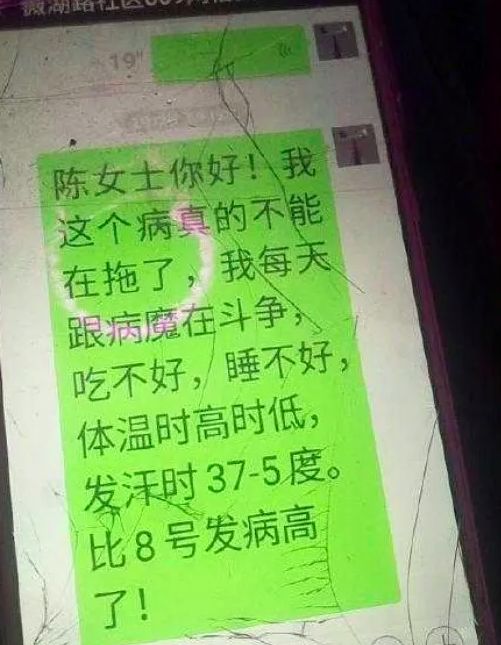 19"
陈女士你好！我
这个病真的不能
在拖了，我每天
跟病魔在斗争，
吃不好，睡不好，
体温时高时低，
发汗时37-5度。
比8号发病高
了！